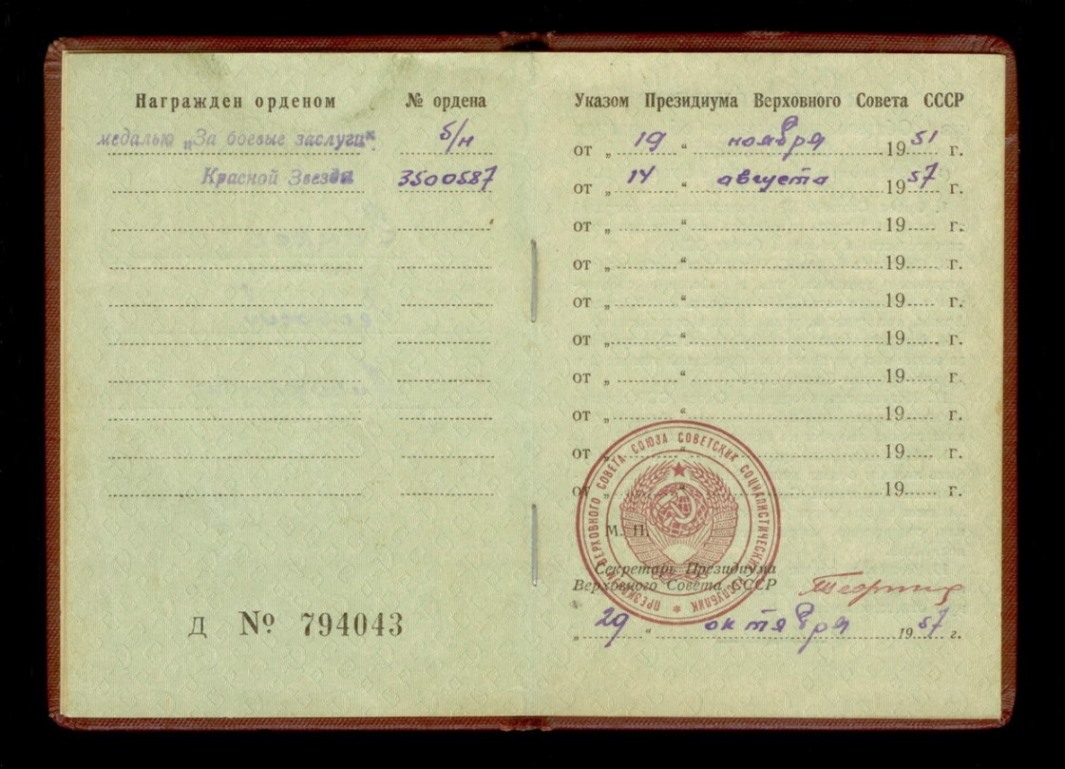 Награжден орденом № ордена
медалью „За боевые заслуги“ б/н
Красной Звезда 3500587
Д № 794043
Указом Президиума Верховного Совета СССР
от „ 19 “ ноября 1951 г.
от „ 14 “ августа 1957 г.
от „ “ 19 г.
от „ “ 19 г.
от „ “ 19 г.
от „ “ 19 г.
от „ “ 19 г.
от „ “ 19 г.
от „ “ 19 г.
от „ “ 19 г.
ПРЕЗИДИУМ ВЕРХОВНОГО СОВЕТА СОЮЗА СОВЕТСКИХ СОЦИАЛИСТИЧЕСКИХ РЕСПУБЛИК
М. П.
Секретарь Президиума
Верховного Совета СССР
„ 29 “ октября 1957 г.